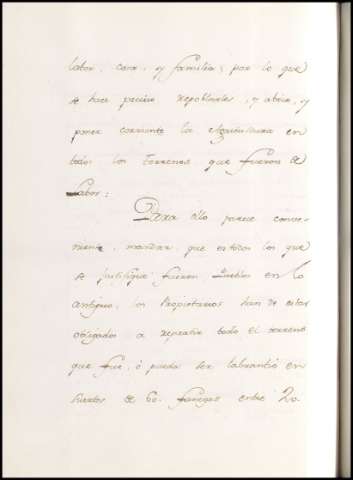 labor, casa, y familia; por lo que
se hace preciso repoblarlos, y abrir, y
poner corriente la Agricultura en
todos los terrenos que fueron de
labor:
Para ello parece conve-
niente, mandar, que en todos los que
se justifique fueron Pueblos en lo
antiguo, los Propietarios han de estar
obligados a repartir todo el terreno
que fue, ó pueda ser labrantio en
suertes de 60. fanegas entre 20.